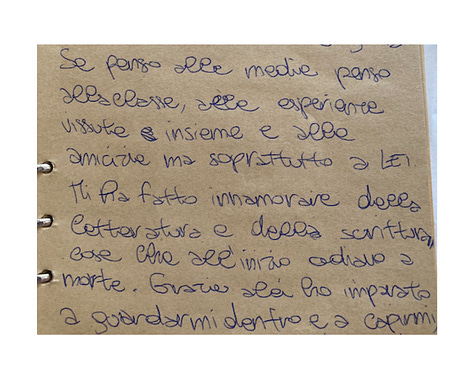 Se penso alle medie penso
alla classe, alle esperienze
vissute e insieme e alle
amicizie ma soprattutto a LEI.
Mi ha fatto innamorare della
letteratura e della scrittura,
cose che all'inizio odiavo a
morte. Grazie a lei ho imparato
a guardarmi dentro e a capirmi